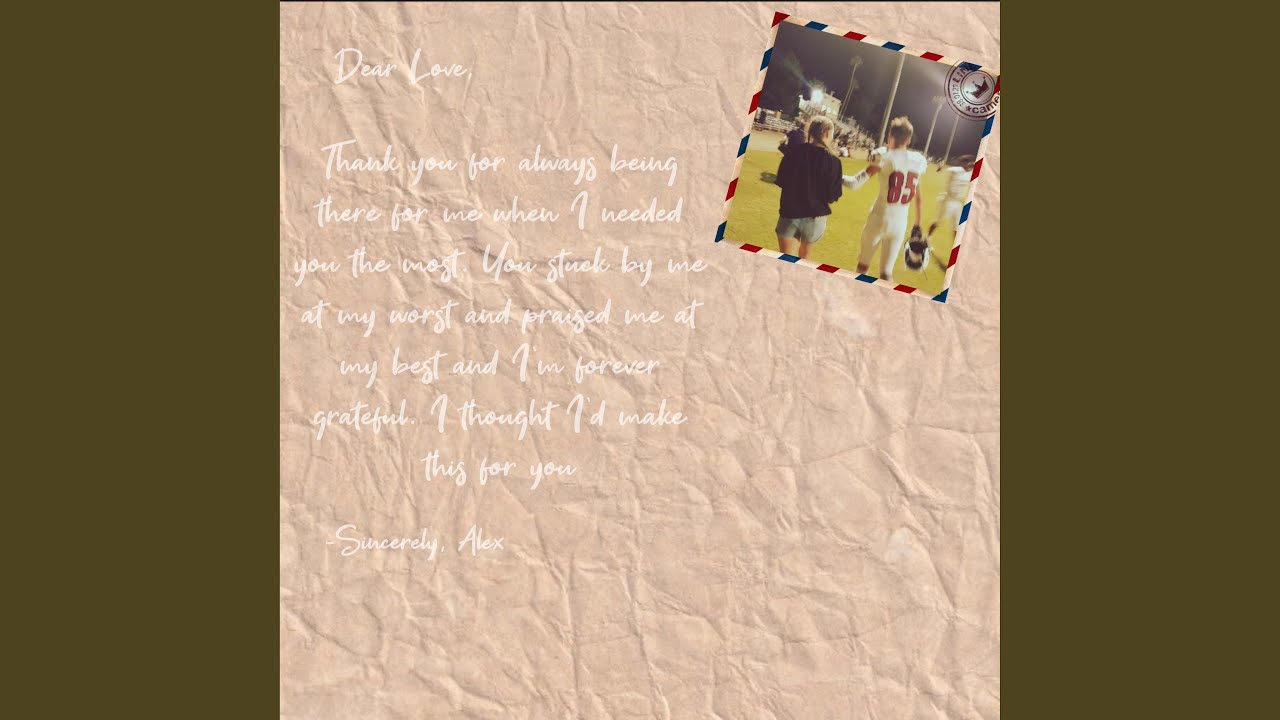 Dear Love,
Thank you for always being
there for me when I needed
you the most. You stuck by me
at my worst and praised me at
my best and I'm forever
grateful. I thought I'd make
this for you
-Sincerely, Alex
85